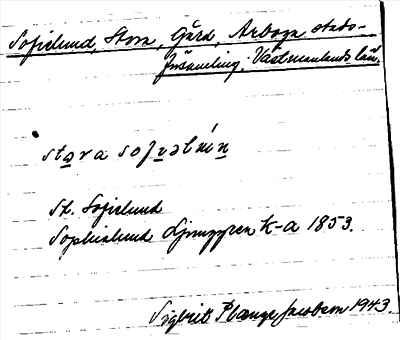 Sofielund, Stora, Gård, Arboga stads-
församling. Västmanlands län.
stora
St. Sofielund
Sophielund Ljunggren K-a 1853.
Sigbrit Plænge Jacobson 1943.